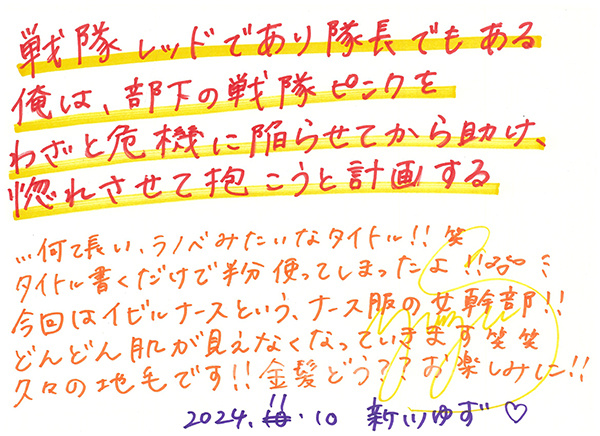 戦隊レッドであり隊長でもある
俺は、部下の戦隊ピンクを
わざと危機に陥らせてから助け、
惚れさせて抱こうと計画する
…何て長い、ラノベみたいなタイトル!!笑
タイトル書くだけで半分使ってしまったよ!!
今回はイビルナースという、ナース服の女幹部!!
どんどん肌が見えなくなっていきます笑笑
久々の地毛です!!金髪どう??お楽しみに!!
2024.11.10 新川ゆず♡